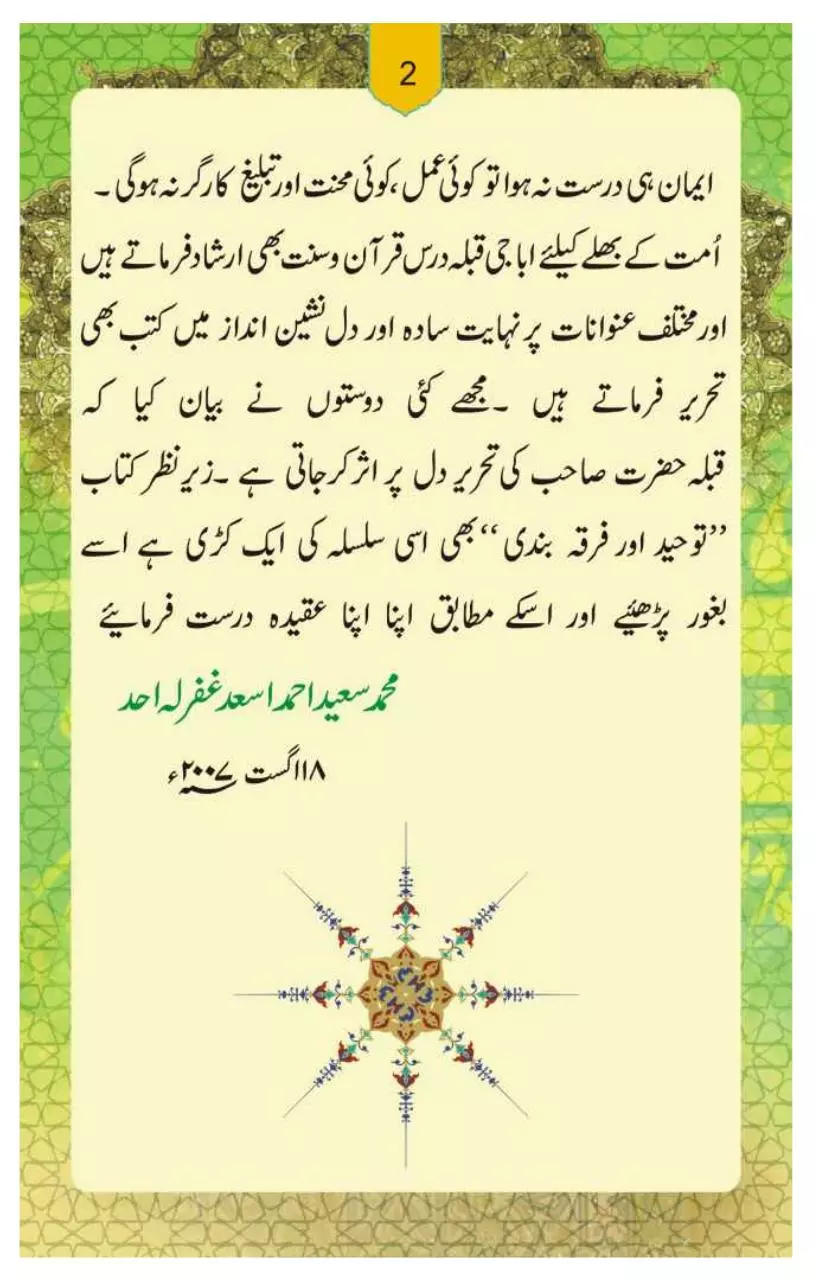 2
ایمان ہی درست نہ ہوا تو کوئی عمل ،کوئی محنت اور تبلیغ کارگر نہ ہوگی ۔
اُمت کے بھلے کیلئے اباجی قبلہ درس قرآن وسنت بھی ارشاد فرماتے ہیں
اور مختلف عنوانات پر نہایت سادہ اور دل نشین انداز میں کتب بھی
تحریر فرماتے ہیں ۔مجھے کئی دوستوں نے بیان کیا کہ
قبلہ حضرت صاحب کی تحریر دل پر اثر کرجاتی ہے ۔زیر نظر کتاب
’’توحید اور فرقہ بندی‘‘ بھی اسی سلسلہ کی ایک کڑی ہے اسے
بغور پڑھئیے اور اسکے مطابق اپنا اپنا عقیدہ درست فرمائیے
محمد سعید احمد اسعد غفرلہ احد
۱۸اگست ۲۰۰۷ء